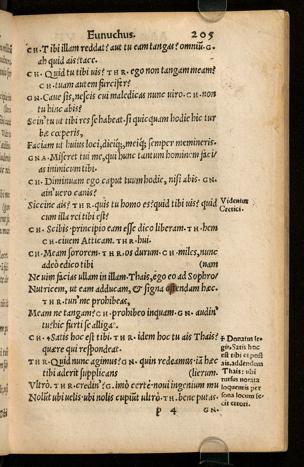 Eunuchus. 205
CH. Tibi illam reddat? aut tu eam tangas? omniũ. G.
ah quid ais? tace.
CH. Quid tu tibi uis? THR. ego non tangam meam?
CH. tuam autem furcifer?
GN. Caue sis, nescis cui maledicas nunc uiro. CH. non
tu hinc abis?
Scin' tu ut tibi res se habeat. si quicquam hodie hic tur
bæ cœperis,
Faciam ut huius loci, dieiq;, meiq; semper memineris.
GNA. Miseret tui me, qui hunc tantum hominem faci/
as inimicum tibi.
CH. Diminuam ego caput tuum hodie, nisi abis. GN.
ain' uero canis?
Siccine ais? THR. quis tu homo es? quid tibi uis? quid
cum illa rei tibi est?
Videntur
Cretici.
CH. Scibis. principio eam esse dico liberam. TH. hem
CH. ciuem Atticam. THR. hui.
CH. Meam sororem. THR. os durum. CH. miles, nunc
adeò edico tibi (nam
Ne uim facias ullam in illam. Thais, ego eo ad Sophro/
Nutricem, ut eam adducam, & signa ostendam hæc.
THR. tun' me prohibeas,
Meam ne tangam? CH. prohibeo inquam. GN. audin'
tu? hic furti se alligat.
CH. Satis hoc est tibi. THR. idem hoc tu ais Thais?
quære qui respondeat.
THR. Quid nunc agimus? GN. quin redeamus: iã hæc
tibi aderit supplicans (lierum.
Vltrò. THR. credin'? G. imò certè. noui ingenium mu
Nolũt ubi uelis: ubi nolis cupiũt ultrò. TH. bene putas.
Donatus le-
git, Satis hoc
est tibi et post
ait, addendum
Thais: ubi
rursus notata
loquentis per
sona locum fe-
cit errori.
P 4 GN.